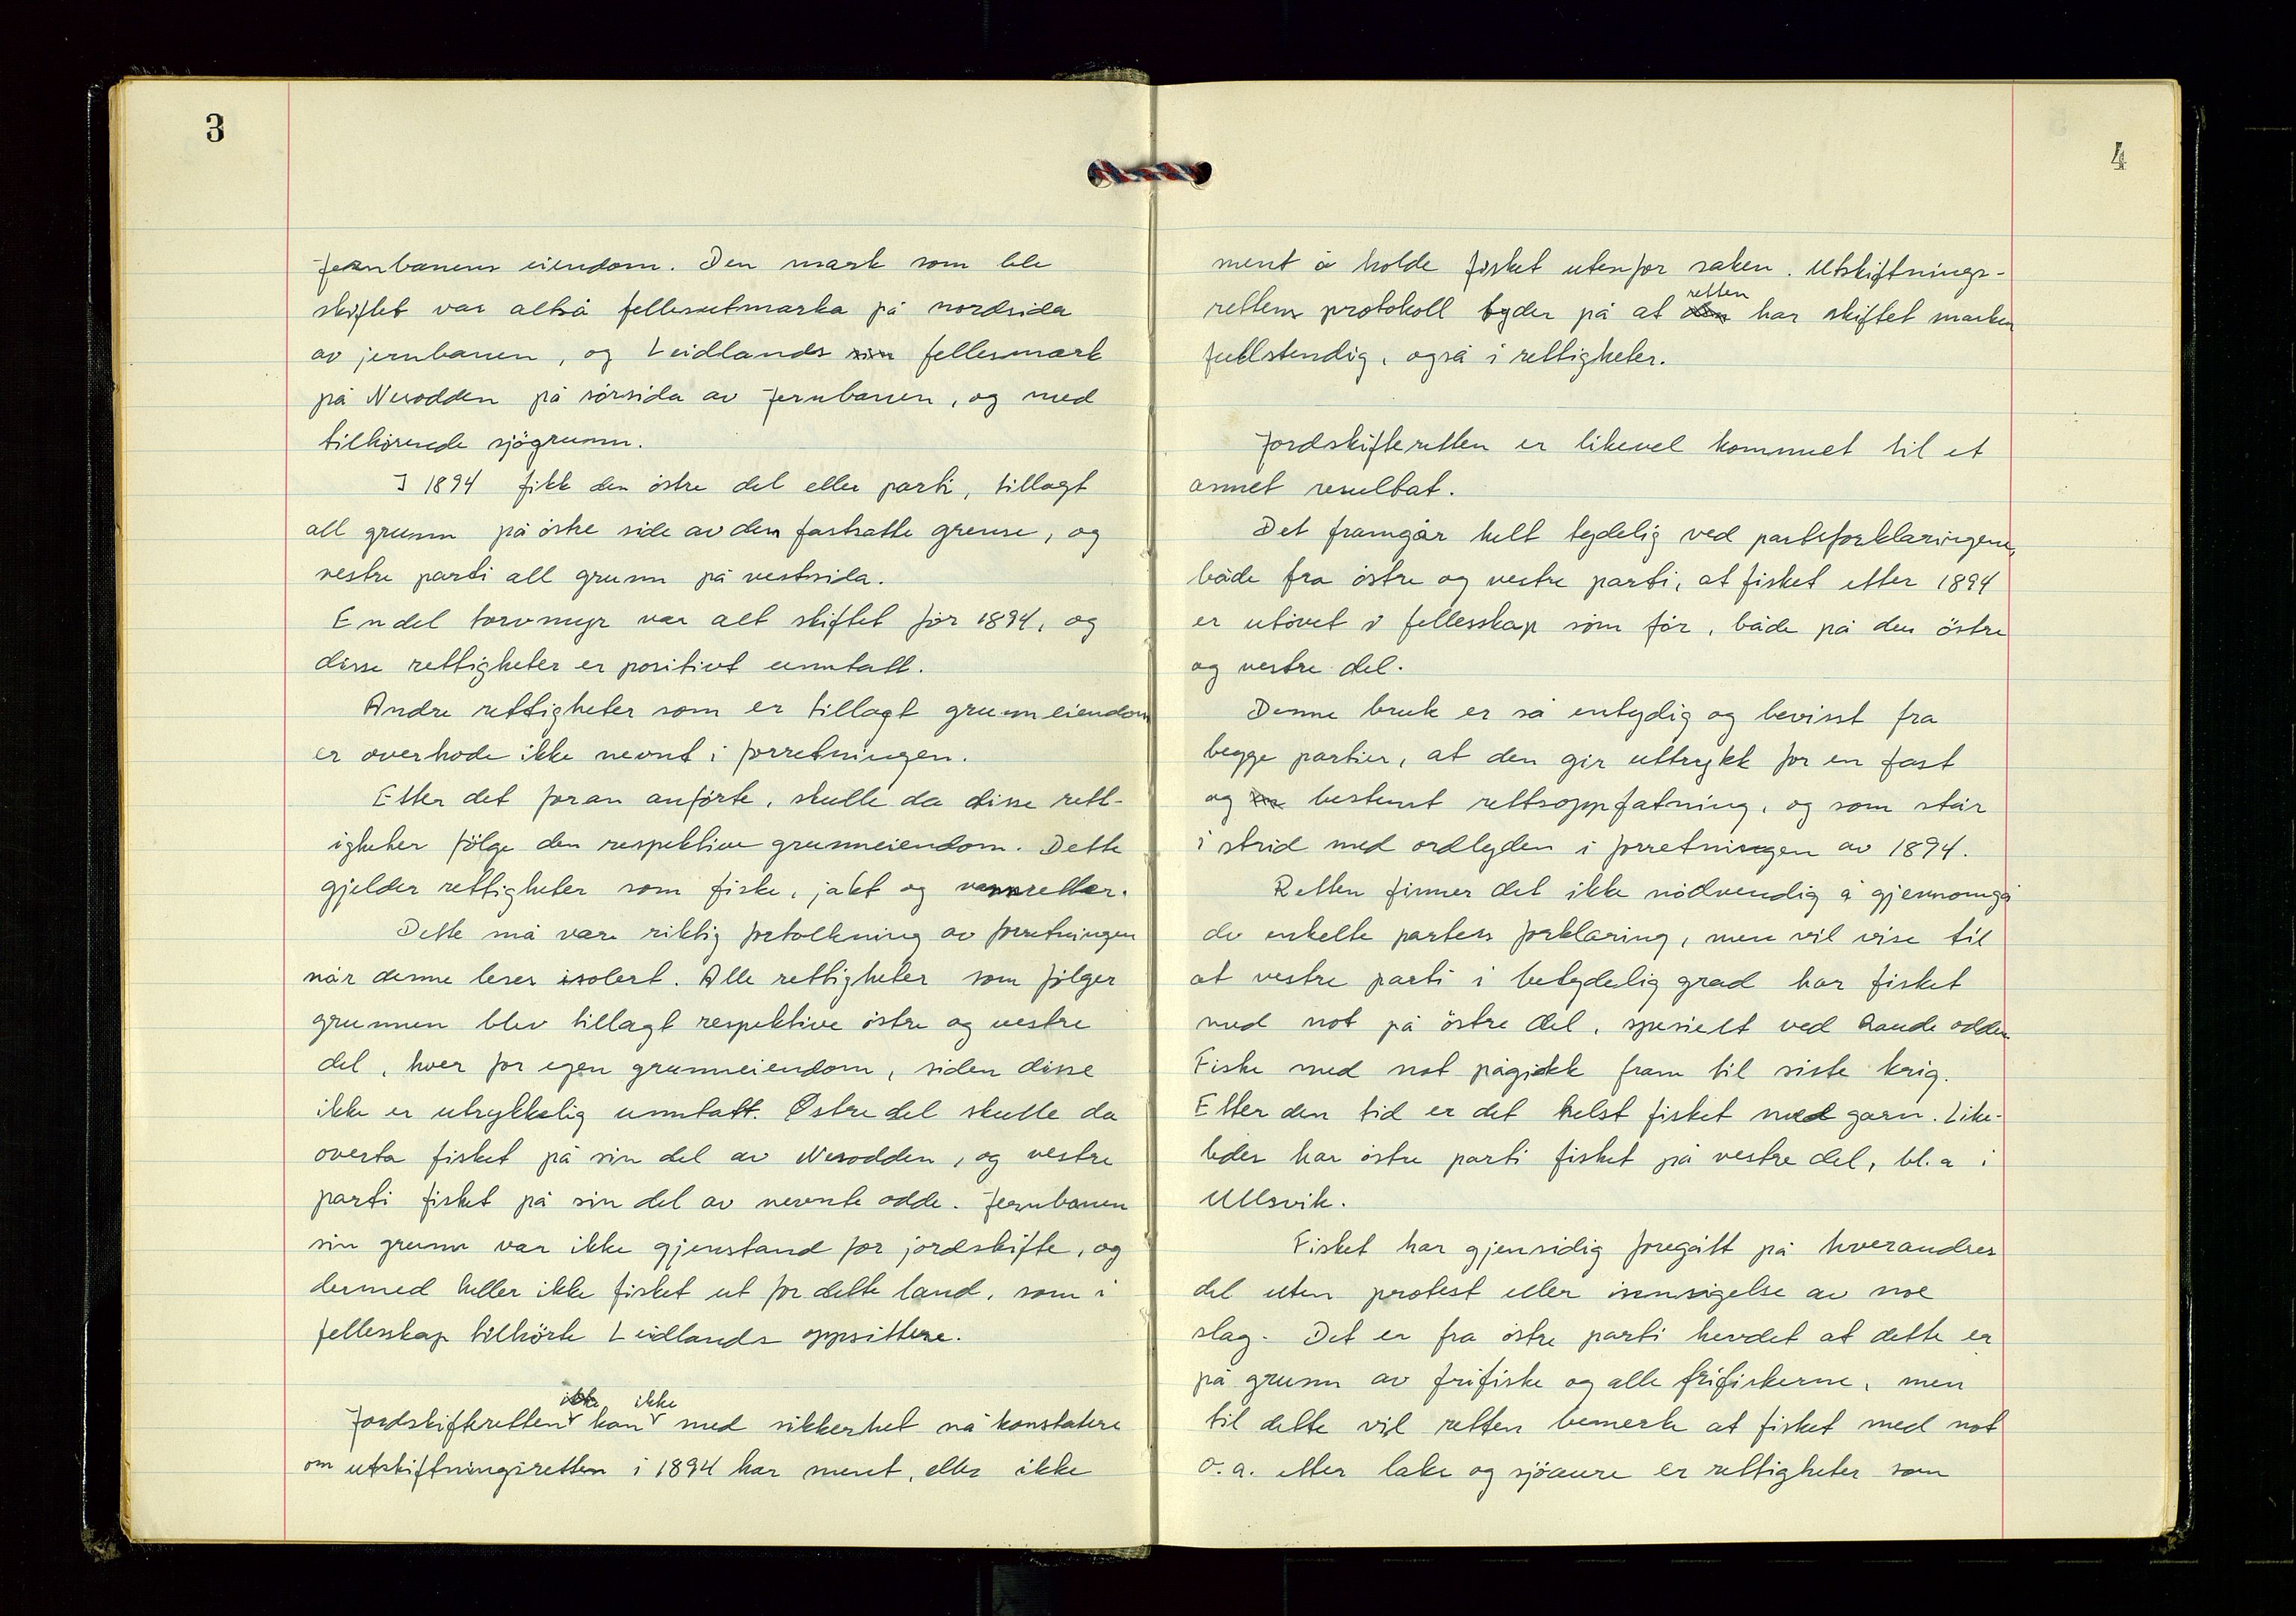 3
Jernbanens eiendom. Den mark som ble
skiftet var altså fellesutmarka på nordsida
av jernbanen, og Leidlands sin fellesmark
på Nesodden på sörsida av Jernbanen, og med
tilhörende sjögrunn.
I 1894 fikk den östre del eller parti, tillagt
all grunn på östre side av den fastsatte grense, og
vestre parti all grunn på vestsida.
En del torvmyr var alt skiftet för 1894, og
disse rettigheter er positivt unntatt.
Andre rettigheter som er tillagt grunneiendom
er overhode ikke nevnt i forretningen.
Etter det foran anförte, skulle da disse rett-
igheter fölge den respektive grunneiendom. Dette
gjelder rettigheter som fiske, jakt og vannretter.
Dette må være riktig fortolkning av forretningen
når denne leses isolert. Alle rettigheter som fölger
grunnen blev tillagt respektive östre og vestre
del, hver for egen grunneiendom, siden disse
ikke er utrykkelig unntatt. Østre del skulle da
overta fisket på sin del av Nesodden, og vestre
parti fisket på sin del av nevnte odde. Jernbanen
sin grunn var ikke gjenstand for jordskifte, og
dermed heller ikke fisket ut for dette land, som i
fellesskap tilhörte Leidlands oppsittere.
ikke ikke
Jordskifteretten kan med sikkerhet nå konstatere
om utskiftningsretten i 1894 har ment, eller ikke
4
ment å holde fisket utenfor saken. Utskiftnings-
retten
rettens protokoll tyder på at den har skiftet marken
fullstendig, også i rettigheter.
Jordskifteretten er likevel kommet til et
annet resultat.
Det framgår helt tydelig ved partsforklaringene,
både fra östre og vestre parti, at fisket etter 1894
er utövet i fellesskap som för, både på den östre
og vestre del.
Denne bruk er så entydig og bevisst fra
begge partier, at den gir uttrykk for en fast
og bestemt rettsoppfatning, og som står
i strid med ordlyden i forretningen av 1894.
Retten finner det ikke nödvendig å gjennomgå
de enkelte parters forklaring, men vil vise til
at vestre parti i betydelig grad har fisket
med not på östre del, spesielt ved Raude odden
Fiske med not pågikk fram til siste krig.
Etter den tid er det helst fisket med garn. Like-
ledes har östre parti fisket på vestre del, bl.a i
Ullsvik.
Fisket har gjensidig foregått på hverandres
del uten protest eller innsigelse av noe
slag. Det er fra östre parti hevdet at dette er
på grunn av frifiske og alle frifiskerne, men
til dette vil retten bemerke at fisket med not
o.a. etter laks og sjöaure er rettigheter som